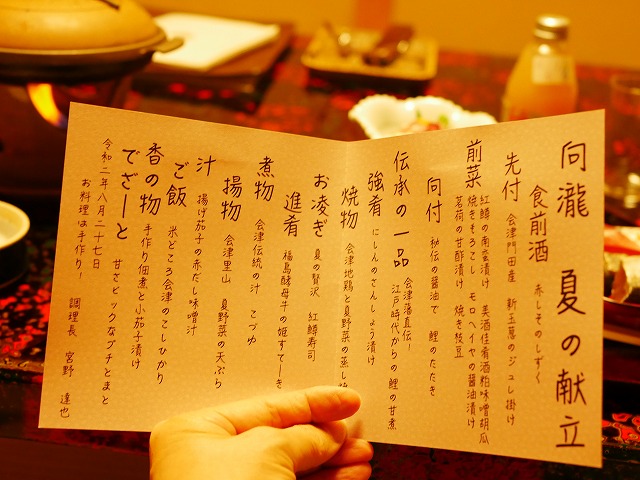 向瀧 夏の献立
食前酒 赤しそのしずく
先付 会津門田産 新玉葱のジュレ掛け
前菜 紅鱒の南蛮漬け 美酒佳肴酒粕味噌胡瓜
焼きもろこし モロヘイヤの醤油漬け
茗荷の甘酢漬け 焼き枝豆
向付 秘伝の醤油で 鯉のたたき
伝承の一品 会津藩直伝!
江戸時代からの鯉の甘煮
強肴 にしんのさんしょう漬け
焼物 会津地鶏と夏野菜の蒸し焼
お凌ぎ 夏の贅沢 紅鱒寿司
進肴 福島酵母牛の姫すてーき
煮物 会津伝統の汁 こづゆ
揚物 会津里山 夏野菜の天ぷら
汁 揚げ茄子の赤だし味噌汁
ご飯 米どころ会津のこしひかり
香の物 手作り佃煮と小茄子漬け
でざーと 甘さビックなプチとまと
令和二年八月二十七日
お料理は手作り! 調理長 宮野 達也